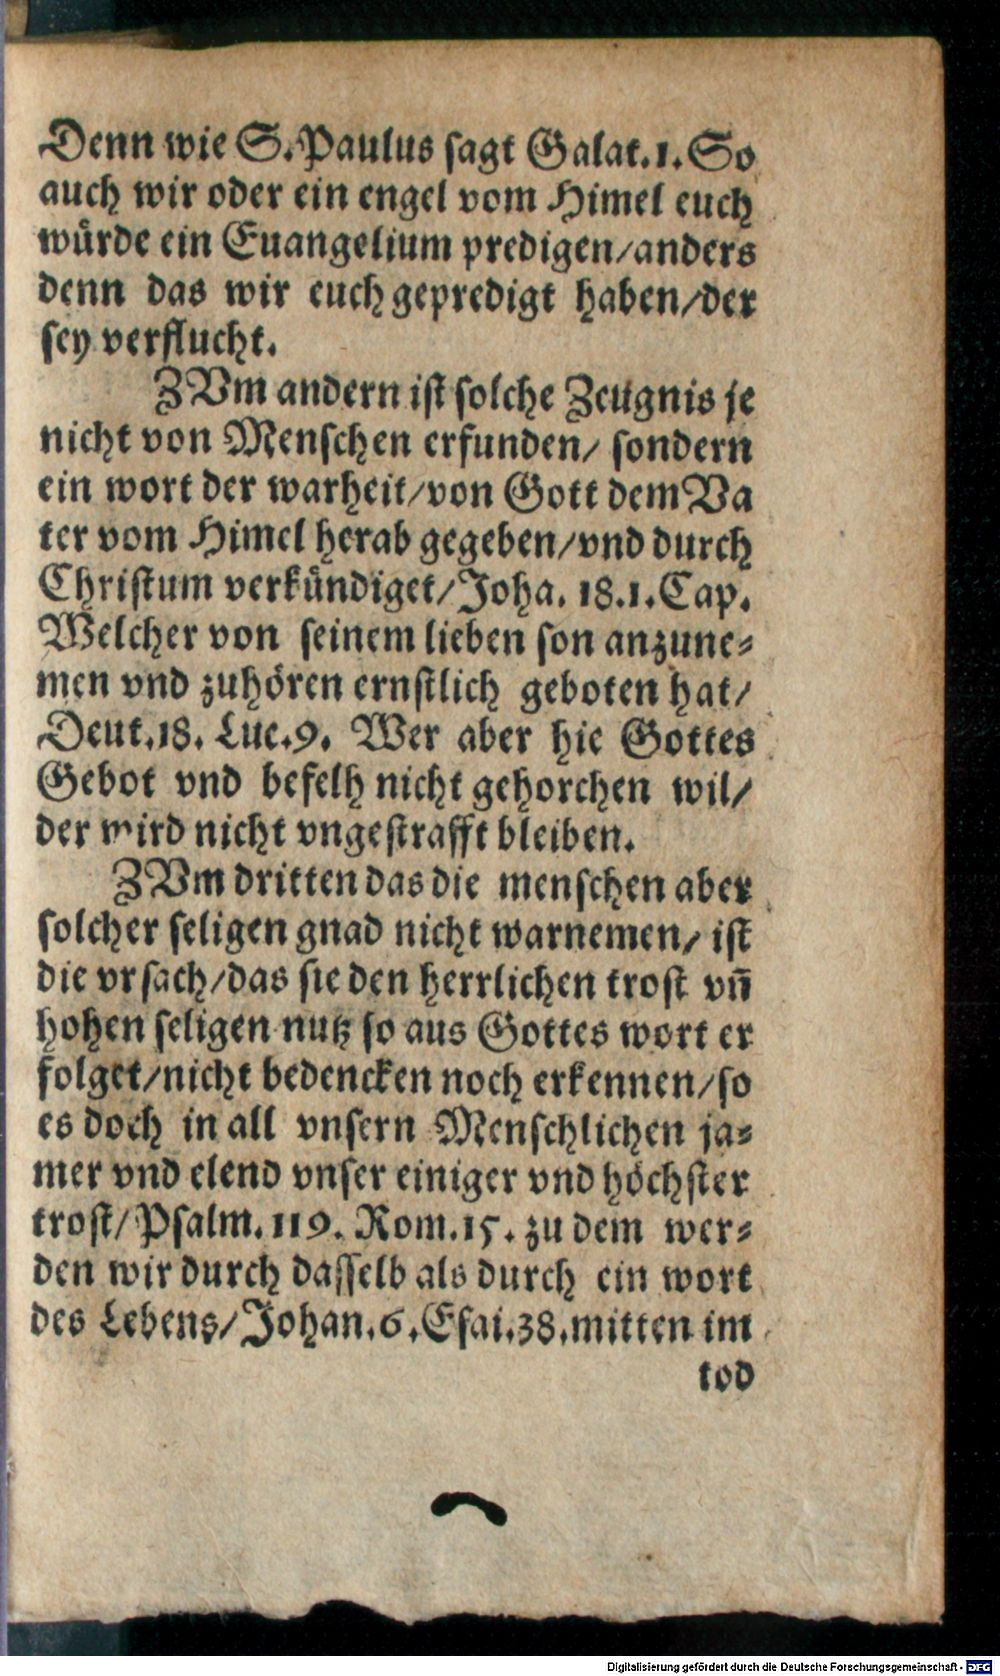 Denn wie S. Paulus sagt Galat. 1. So
auch wir oder ein engel vom Himel euch
würde ein Euangelium predigen/anders
denn das wir euch gepredigt haben/der
sey verflucht.
ZVm andern ist solche Zeugnis je
nicht von Menschen erfunden/ sondern
ein wort der warheit/von Gott dem Va
ter vom Himel herab gegeben/vnd durch
Christum verkündiget/Joha. 18.1. Cap.
Welcher von seinem lieben son anzune-
men vnd zuhören ernstlich geboten hat/
Deut.18. Luc.9. Wer aber hie Gottes
Gebot vnd befelh nicht gehorchen wil/
der wird nicht vngestrafft bleiben.
ZVm dritten das die menschen aber
solcher seligen gnad nicht warnemen/ ist
die vrsach/das sie den herrlichen trost vñ
hohen seligen nutz so aus Gottes wort er
folget/nicht bedencken noch erkennen/so
es doch in all vnsern Menschlichen ja-
mer vnd elend vnser einiger vnd höchster
trost/Psalm. 119. Rom.15. zu dem wer-
den wir durch dasselb als durch ein wort
des Lebens/Johan.6.Esai.38.mitten im
tod
Digitalisierung gefördert durch die Deutsche Forschungsgemeinschaft - DFG